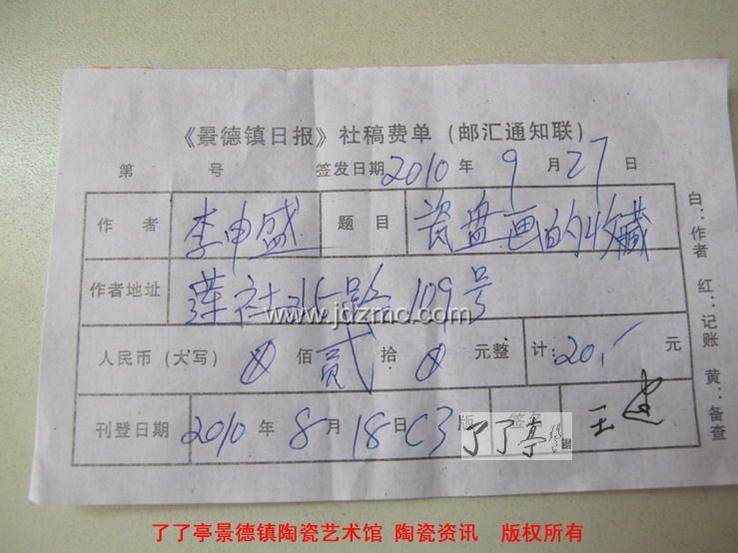 《景德镇日报》社稿费单(邮汇通知联)
第 号 签发日期 2010 年 9 月 27 日
作 者 李申盛 题 目 瓷盘画的收藏
作者地址 莲社北路109号
www.jdzmc.com
人民币(大写) 0 佰 贰 拾 0 元整 计: 20.- 元
刊登日期 2010 年 8 月 18 日 C3 版 签名 王
了了亭
白:作者 红:记账 黄:备查
了了亭景德镇陶瓷艺术馆 陶瓷资讯 版权所有